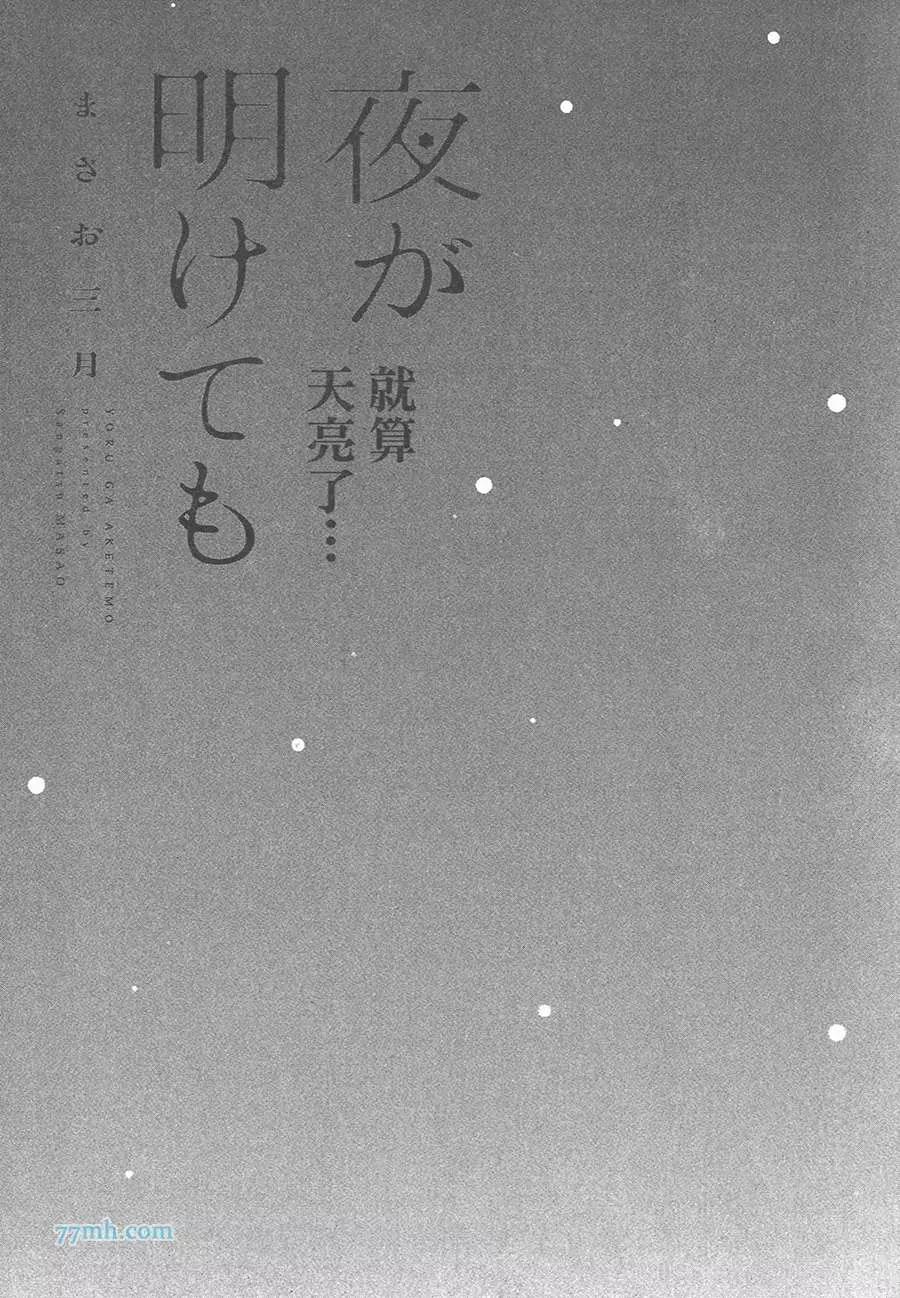 夜が
明けても
就算
天亮了…
まさお三月
YORU GA AKETEMO
presented by
Sangatsu MASAO
77mh.com